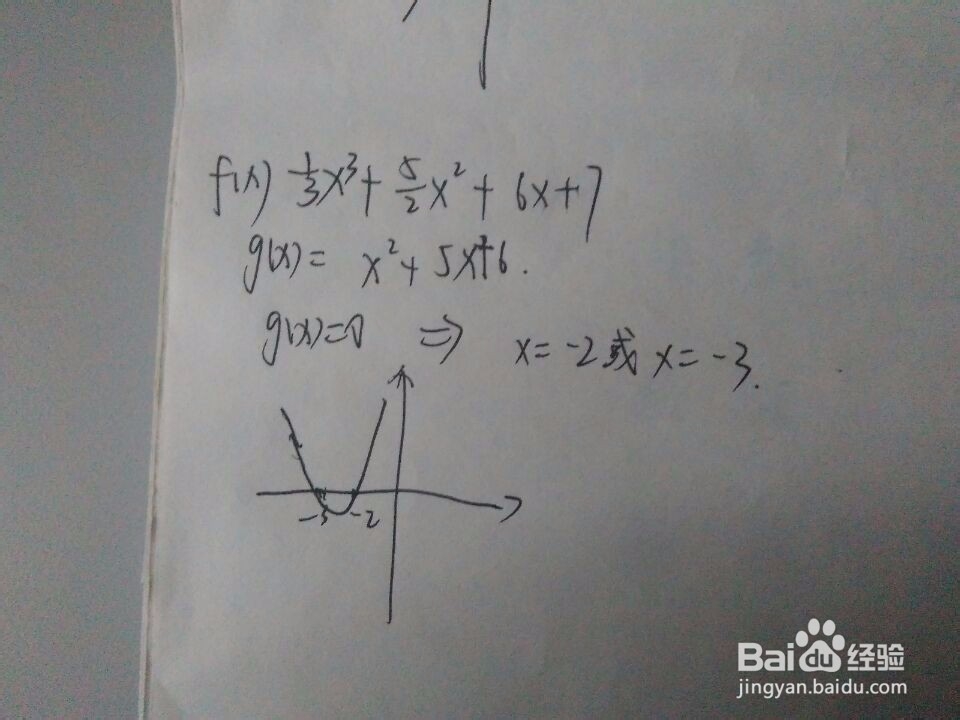 f(x) ⅓x³+ 5/2x²+ 6x+7
g(x)= x²+ 5x+6.
g(x)=0 ⇒ x=-2或x=-3.
-3 -2
Baidu经验
jingyan.baidu.com